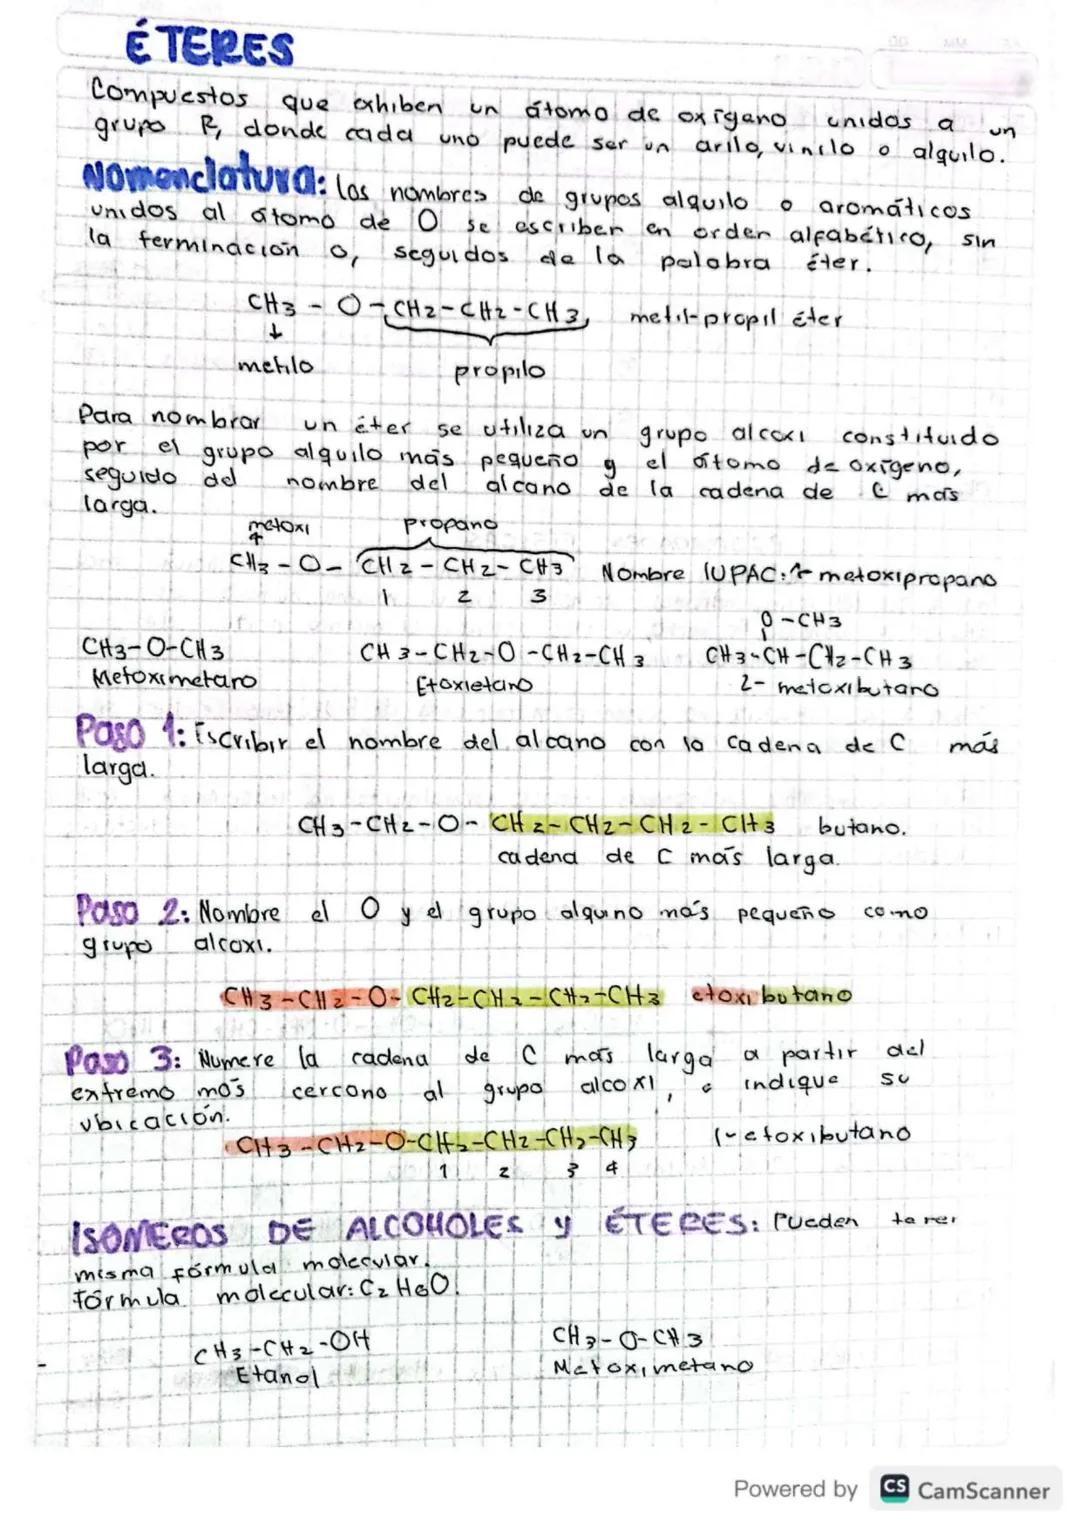 ÉTERES
Compuestos que exhiben un átomo de oxígeno unidos a un
grupo R, donde cada uno puede ser un arilo, vinilo o alquilo.
Nomenclatura: los nombres de grupos alquilo o aromáticos
unidos al átomo de O se escriben en orden alfabético, sin
la terminación o, seguidos de la palabra éter.
CH3 - O - CH2 - CH2 - CH3, metil-propil éter
↓
metilo propilo
Para nombrar un éter se utiliza un grupo alcoxi constituido
por el grupo alquilo más pequeño y el átomo de oxígeno,
seguido del nombre del alcano de la cadena de C más
larga.
metoxi propano
CH3 - O - CH2 - CH2 - CH3 Nombre IUPAC: 1- metoxipropano
1 2 3
O - CH3
CH3-O-CH3 CH3-CH2-O-CH2-CH3 CH3-CH-CH2-CH3
Metoximetano Etoxietano 2- metoxibutano
Paso 1: Escribir el nombre del alcano con la cadena de C más
larga.
CH3-CH2-O- CH2-CH2-CH2-CH3 butano.
cadena de C más larga.
Paso 2: Nombre el O y el grupo alquino más pequeño como
grupo alcoxi.
CH3-CH2-O-CH2-CH2-CH2-CH3 etoxi butano
Paso 3: Numere la cadena de C más larga a partir del
extremo más cercano al grupo alcoxi, e indique su
ubicación.
CH3-CH2-O-CH2-CH2-CH2-CH3 1-etoxibutano
1 2 3 4
ISOMEROS DE ALCOHOLES y ÉTERES: Pueden tener
misma fórmula molecular.
Fórmula molecular: C2H6O.
CH3-CH2-OH CH3-O-CH3
Etanol Metoximetano
Powered by CS CamScanner